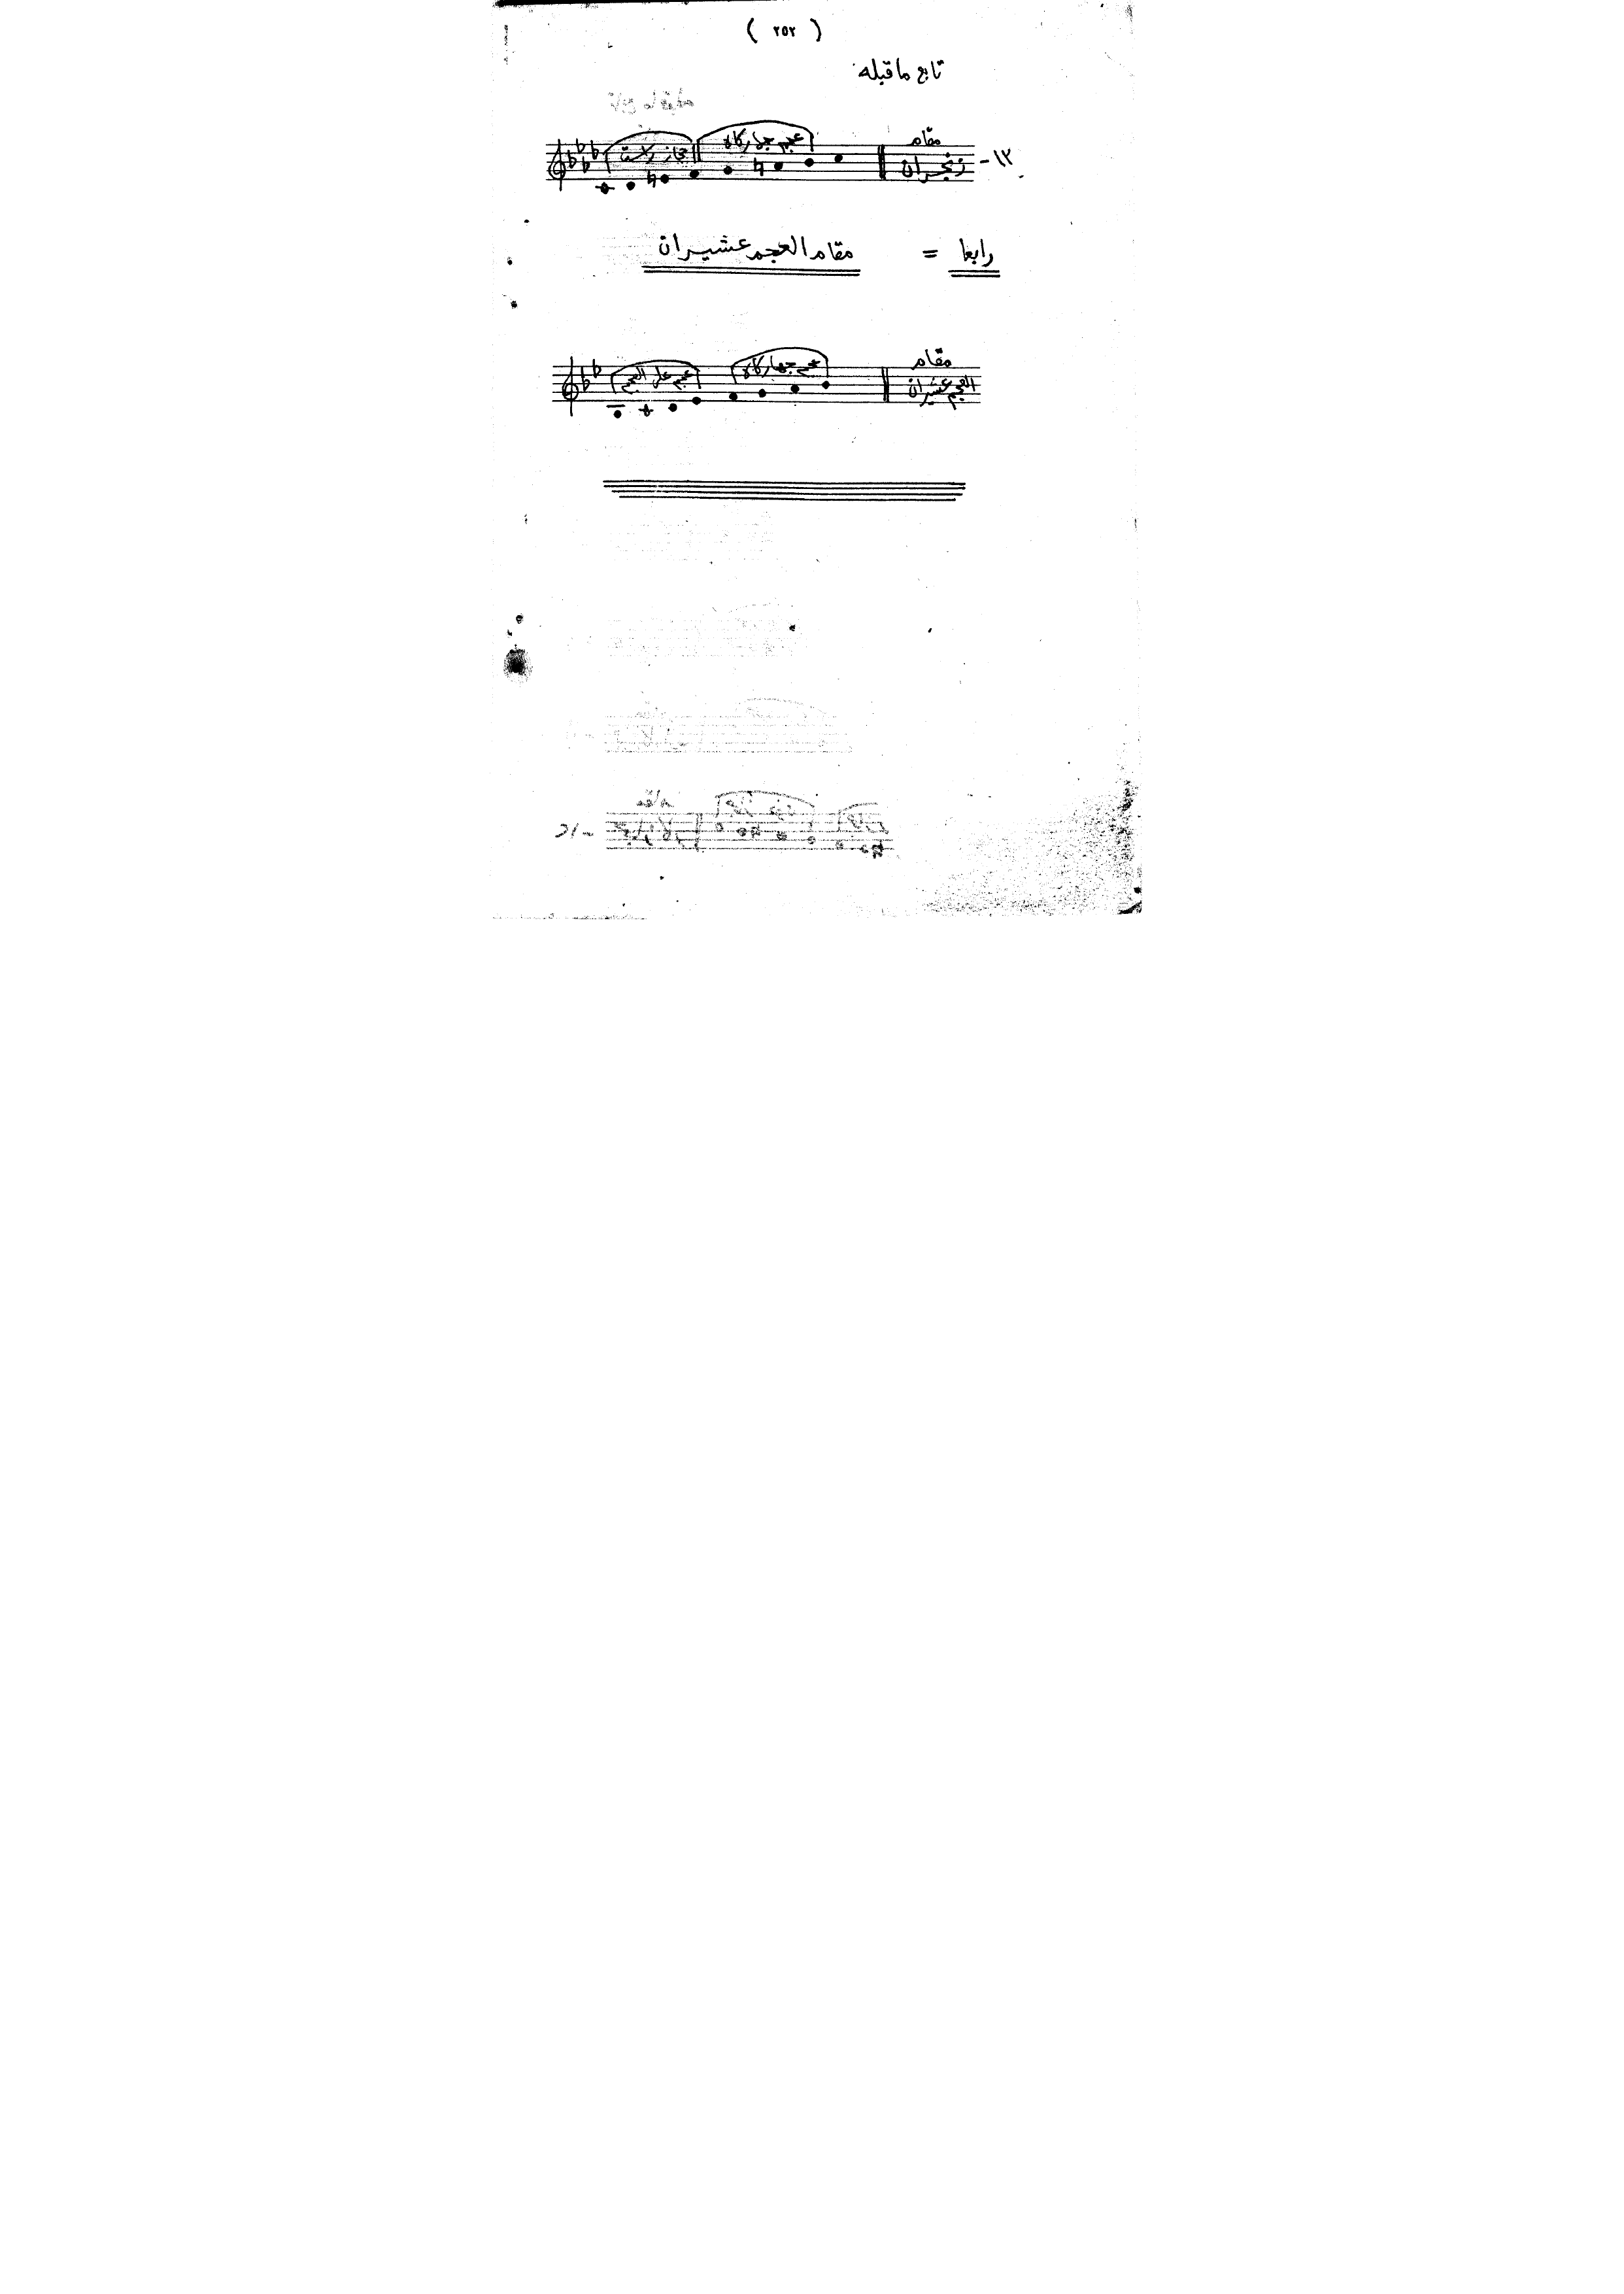 ( ٢٥٢ )
تابع ما قبله
١٣- مقام زنجران
عجم جهاركاه
حجاز راست
رابعا = مقام العجم عشيران
مقام العجم عشيران
عجم جهاركاه
عجم على العجم